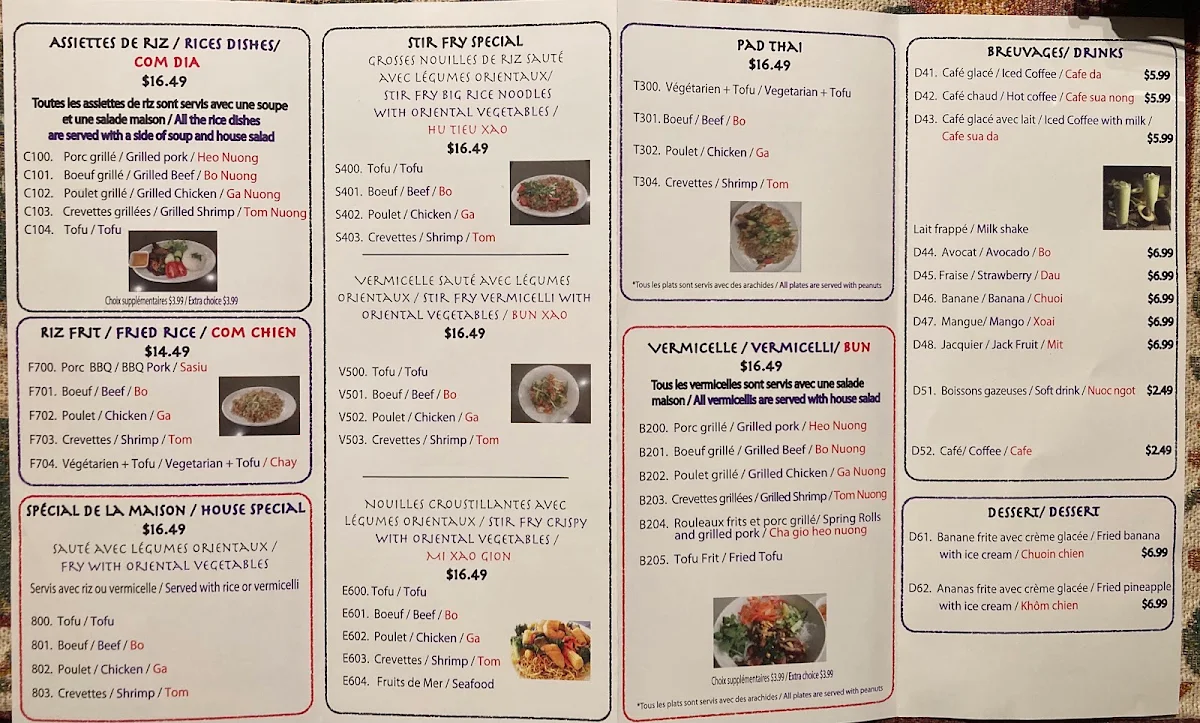 ASSIETTES DE RIZ / RICES DISHES/
COM DIA
$16.49
Toutes les assiettes de riz sont servis avec une soupe
et une salade maison / All the rice dishes
are served with a side of soup and house salad
C100. Porc grillé / Grilled pork / Heo Nuong
C101. Boeuf grillé / Grilled Beef / Bo Nuong
C102. Poulet grillé / Grilled Chicken / Ga Nuong
C103. Crevettes grillées / Grilled Shrimp / Tom Nuong
C104. Tofu / Tofu
Choix supplémentaires $3.99 / Extra choice $3.99
RIZ FRIT / FRIED RICE / COM CHIEN
$14.49
F700. Porc BBQ / BBQ Pork / Sasiu
F701. Boeuf / Beef / Bo
F702. Poulet / Chicken / Ga
F703. Crevettes / Shrimp / Tom
F704. Végétarien + Tofu / Vegetarian + Tofu / Chay
SPÉCIAL DE LA MAISON / HOUSE SPECIAL
$16.49
SAUTÉ AVEC LÉGUMES ORIENTAUX /
FRY WITH ORIENTAL VEGETABLES
Servis avec riz ou vermicelle / Served with rice or vermicelli
800. Tofu / Tofu
801. Boeuf / Beef / Bo
802. Poulet / Chicken / Ga
803. Crevettes / Shrimp / Tom
STIR FRY SPECIAL
GROSSES NOUILLES DE RIZ SAUTÉ
AVEC LÉGUMES ORIENTAUX/
STIR FRY BIG RICE NOODLES
WITH ORIENTAL VEGETABLES /
HU TIEU XAO
$16.49
S400. Tofu / Tofu
S401. Boeuf / Beef / Bo
S402. Poulet / Chicken / Ga
S403. Crevettes / Shrimp / Tom
VERMICELLE SAUTÉ AVEC LÉGUMES
ORIENTAUX / STIR FRY VERMICELLI WITH
ORIENTAL VEGETABLES / BUN XAO
$16.49
V500. Tofu / Tofu
V501. Boeuf / Beef / Bo
V502. Poulet / Chicken / Ga
V503. Crevettes / Shrimp / Tom
NOUILLES CROUSTILLANTES AVEC
LÉGUMES ORIENTAUX / STIR FRY CRISPY
WITH ORIENTAL VEGETABLES /
MI XAO GION
$16.49
E600. Tofu / Tofu
E601. Boeuf / Beef / Bo
E602. Poulet / Chicken / Ga
E603. Crevettes / Shrimp / Tom
E604. Fruits de Mer / Seafood
PAD THAI
$16.49
T300. Végétarien + Tofu / Vegetarian + Tofu
T301. Boeuf / Beef / Bo
T302. Poulet / Chicken / Ga
T304. Crevettes / Shrimp / Tom
*Tous les plats sont servis avec des arachides / All plates are served with peanuts
VERMICELLE / VERMICELLI/ BUN
$16.49
Tous les vermicelles sont servis avec une salade
maison / All vermicellis are served with house salad
B200. Porc grillé / Grilled pork / Heo Nuong
B201. Boeuf grillé / Grilled Beef / Bo Nuong
B202. Poulet grillé / Grilled Chicken / Ga Nuong
B203. Crevettes grillées / Grilled Shrimp / Tom Nuong
B204. Rouleaux frits et porc grillé/ Spring Rolls
and grilled pork / Cha gio heo nuong
B205. Tofu Frit / Fried Tofu
Choix supplémentaires $3.99 / Extra choice $3.99
*Tous les plats sont servis avec des arachides / All plates are served with peanuts
BREUVAGES/ DRINKS
D41. Café glacé / Iced Coffee / Cafe da $5.99
D42. Café chaud / Hot coffee / Cafe sua nong $5.99
D43. Café glacé avec lait / Iced Coffee with milk /
Cafe sua da $5.99
Lait frappé / Milk shake
D44. Avocat / Avocado / Bo $6.99
D45. Fraise / Strawberry / Dau $6.99
D46. Banane / Banana / Chuoi $6.99
D47. Mangue/ Mango / Xoai $6.99
D48. Jacquier / Jack Fruit / Mit $6.99
D51. Boissons gazeuses / Soft drink / Nuoc ngot $2.49
D52. Café/ Coffee / Cafe $2.49
DESSERT/ DESSERT
D61. Banane frite avec crème glacée / Fried banana
with ice cream / Chuoin chien $6.99
D62. Ananas frite avec crème glacée / Fried pineapple
with ice cream / Khôm chien $6.99